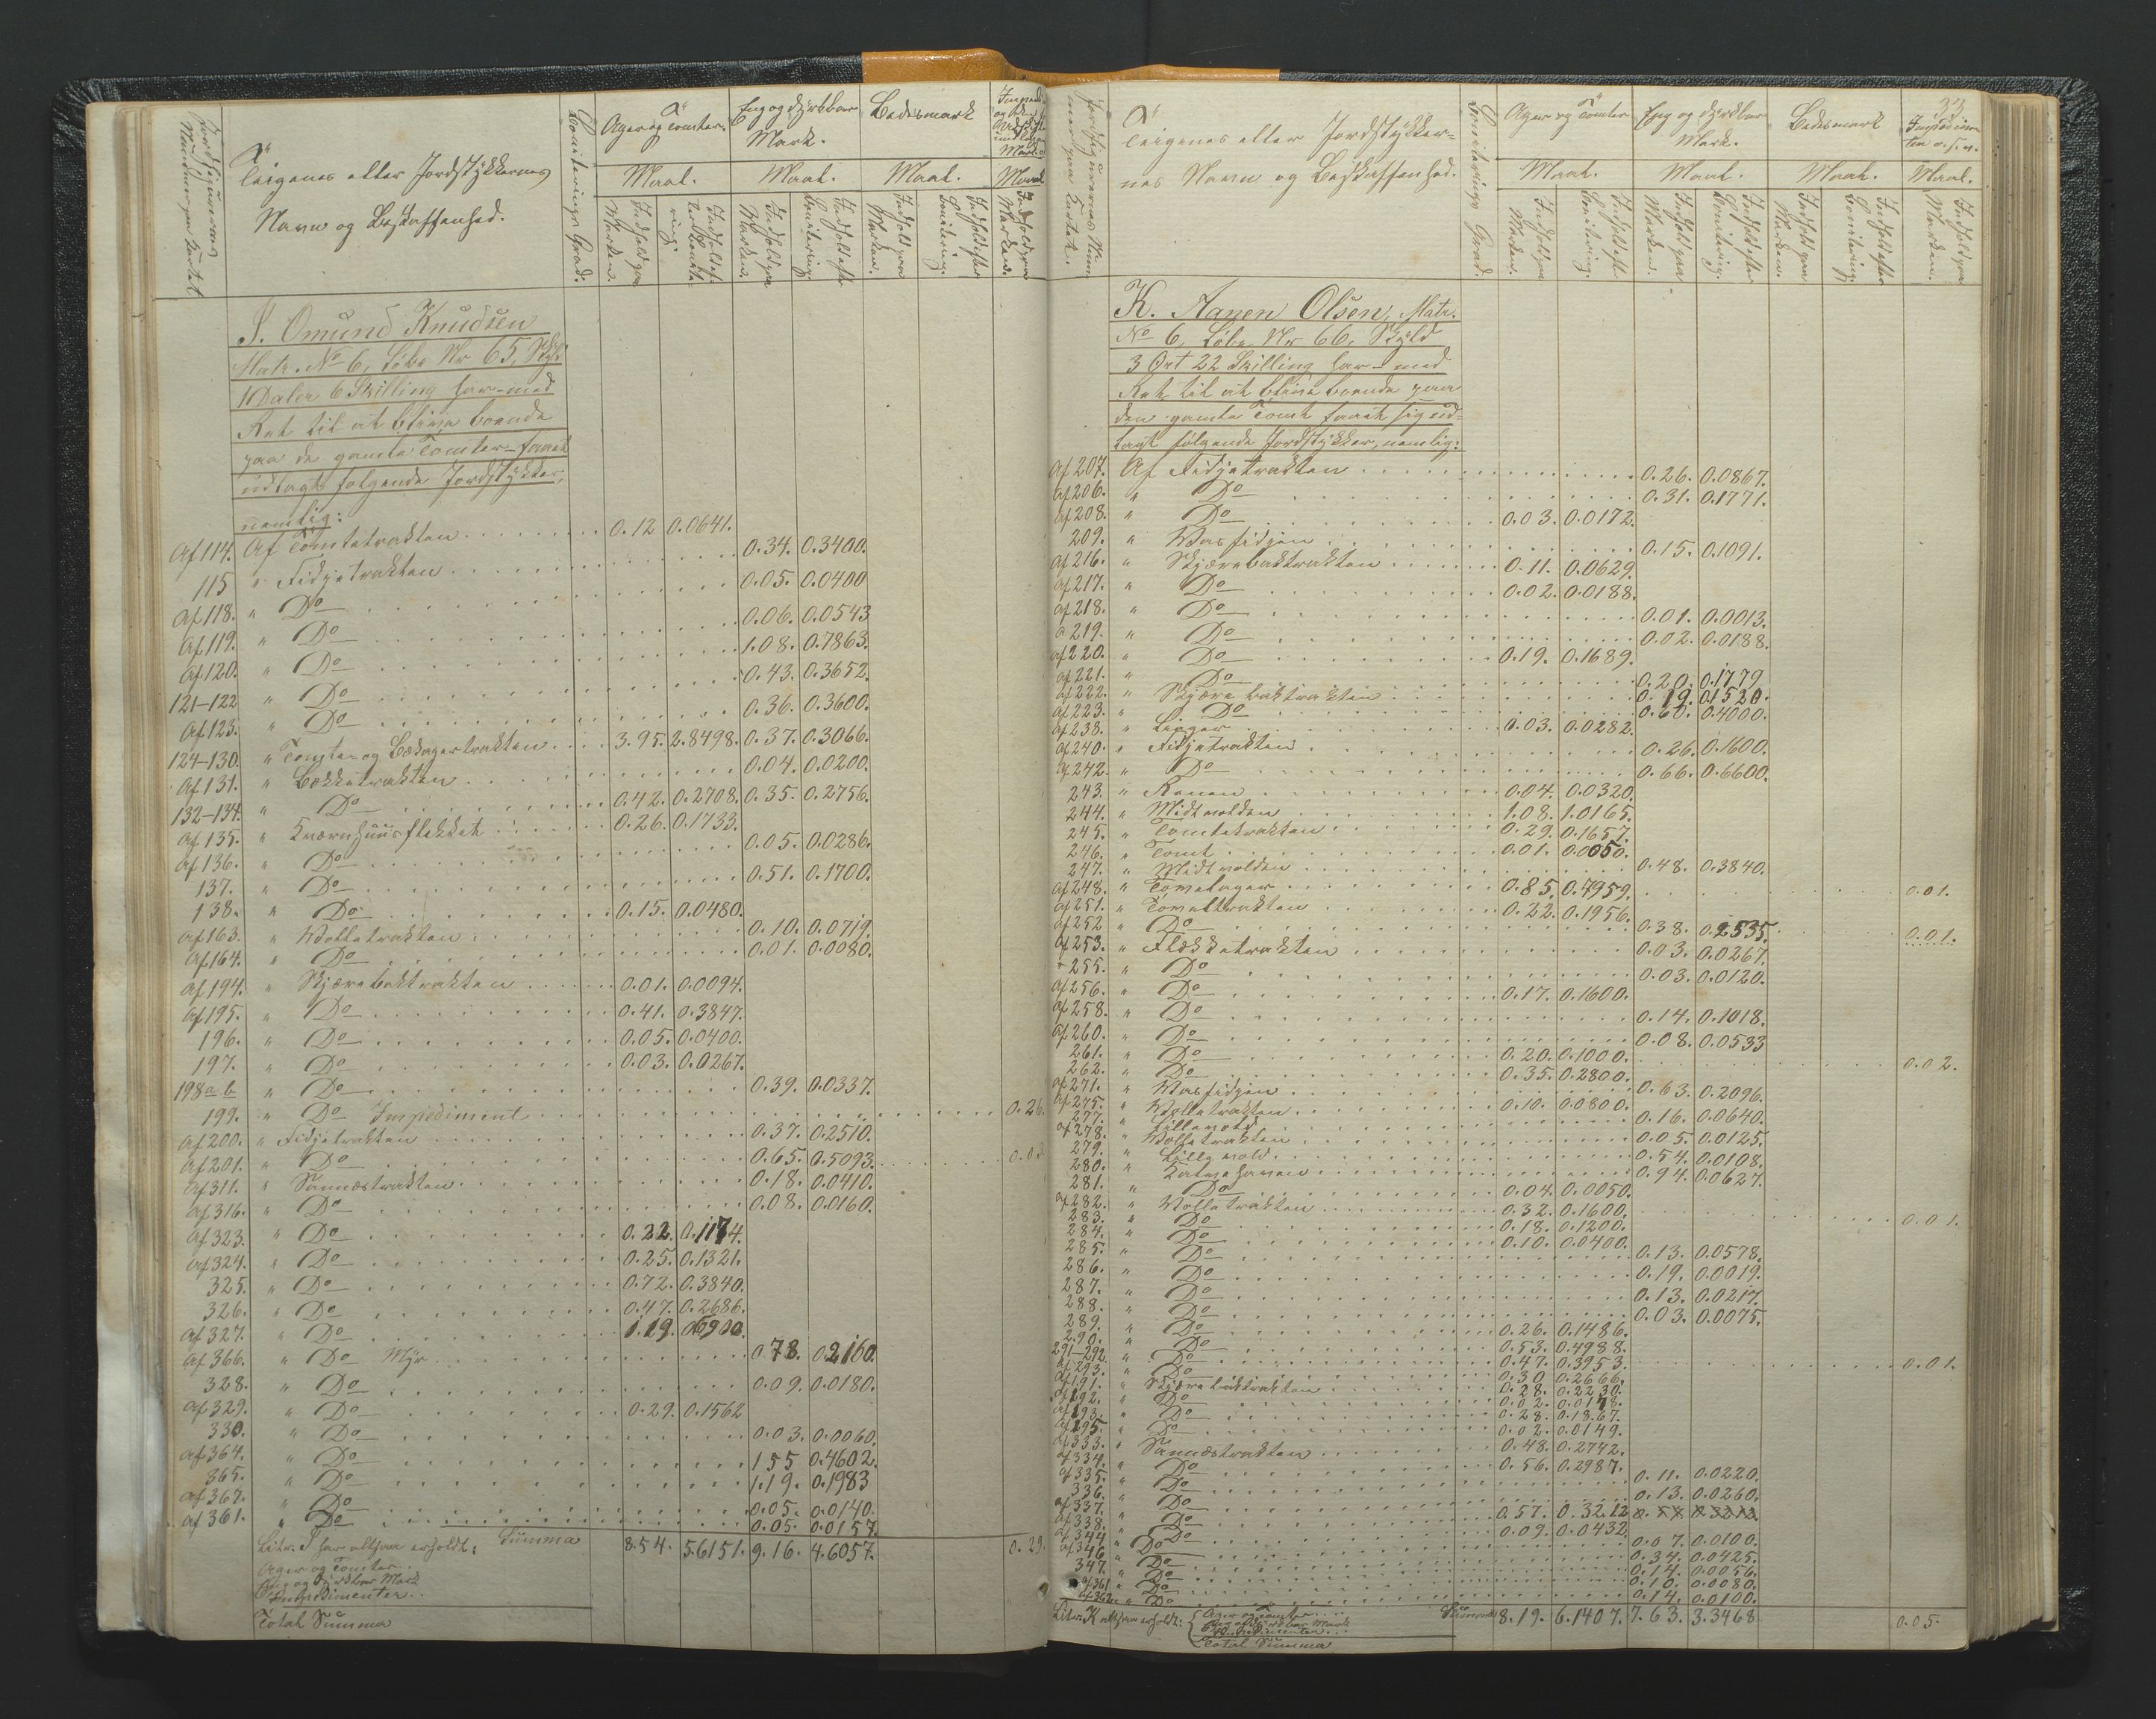 Teigenes eller Jordstykkernes
Navn og Beskaffenhed.
Boniterings Grad.
Ager og Tomter.
Eng og dyrkbar
Mark.
Bedesmark
Maal. Maal. Maal. Maal
J. Omund Knudsen
Matr. No 6, Løbe Nr 65, Skyld
1 Daler 6 Skilling har med
Ret til at blive boende
paa de gamle Tomter faaet
udlagt følgende Jordstykker,
nemlig:
Af 114. Af Tomtetrakten 0.12 0.0641.
115 " Fidjetrakten 0.34. 0.3400.
Af 118. " Do 0.05. 0.0400
Af 119. " Do 0.06. 0.0543
Af 120. " Do 1.08. 0.7863.
121-122 " Do 0.43. 0.3652.
Af 123. " Do 0.36. 0.3600.
124-130. " Tomter og Bækagertrakten 3.95. 2.8498. 0.37. 0.3066.
Af 131. " Bekketrakten 0.04. 0.0200.
132-134. " Do 0.42. 0.2708. 0.35. 0.2756.
Af 135. " Kværnhuusflekket 0.26. 0.1733.
Af 136. " Do 0.05. 0.0286.
137. " Do 0.51. 0.1700.
138. " Do 0.15. 0.0480.
Af 163. " Volletrakten 0.10. 0.0719.
Af 164. " Do 0.01. 0.0080.
Af 194. " Skjærebaktrakten 0.01. 0.0094.
Af 195. " Do 0.41. 0.3847.
196. " Do 0.05. 0.0400.
197. " Do 0.03. 0.0267.
198 a b " Do 0.39. 0.0337.
199. " Do Impediment 0.26.
Af 200. " Fidjetrakten 0.37. 0.2510.
Af 201. " Do 0.65. 0.5093. 0.03
Af 311. " Sannæstrakten 0.18. 0.0410.
Af 316. " Do 0.08. 0.0160.
Af 323. " Do 0.22. 0.1174.
Af 324. " Do 0.25. 0.1321.
325. " Do 0.72. 0.3840.
326. " Do 0.47. 0.2686.
Af 327. " Do 1.19.
Af 366. " Do Myr 0.78. 0.2160.
328. " Do 0.09. 0.0180.
Af 329. " Do 0.29. 0.1562
330. " Do 0.03. 0.0060.
Af 364. " Do 155 0.4602.
365. " Do 1.19. 0.1983
Af 367. " Do 0.05. 0.0140.
Af 361. " Do 0.05. 0.0157.
Litr. J har altsaa erholdt: Summa 8.54. 5.6151. 9.16. 4.6057. 0.29.
Ager og Tomter
Eng og dyrkbar Mark
Impedimenter
Total Summa
33
Teigenes eller Jordstykker-
nes Navn og Beskaffenhed.
Boniterings Grad.
Ager og Tomter
Eng og dyrkbar
Mark.
Bedesmark
Maal. Maal. Maal. Maal.
K. Aanen Olsen, Matr.
No 6, Løbe Nr 66, Skyld
3 Ort 22 Skilling har med
Ret til at blive boende paa
den gamle Tomt faaet sig ud-
lagt følgende Jordstykker, nemlig:
Af 207. Af Fidjetrakten 0.26. 0.0867.
Af 206. " Do 0.31. 0.1771.
Af 208. " Do 0.03. 0.0172.
209. " Vasfidjen 0.15. 0.1091.
Af 216. " Skjærebaktrakten 0.11. 0.0629.
Af 217. " Do 0.02. 0.0188.
Af 218. " Do 0.01. 0.0013.
219. " Do 0.02. 0.0188.
Af 220. " Do 0.19. 0.1689.
Af 221. " Do 0.20. 0.1779
Af 222. " Skjærebaktrakten 0.19. 0.1520.
Af 223. " Do 0.60. 0.4000.
Af 238. " 0.03. 0.0282.
Af 240. " Fidjetrakten 0.26. 0.1600.
Af 242. " Do 0.66. 0.6600.
243. " Renen 0.04. 0.0320.
244. " Midtvolden 1.08. 1.0165.
245. " Tomtetrakten 0.29. 0.1657.
246. " Tomt 0.01. 0.0050.
247. " Midtvolden 0.48. 0.3840.
Af 248. " Tovelager 0.85. 0.4959. 0.01.
Af 251. " Toveltrakten 0.22. 0.1956.
Af 252 " Do 0.38. 0.2535. 0.01.
Af 253. " Flekketrakten 0.03. 0.0267.
255. " Do 0.03. 0.0120.
Af 256. " Do 0.17. 0.1600.
Af 258. " Do 0.14. 0.1018.
Af 260. " Do 0.08. 0.0533
261. " Do 0.20. 0.1000. 0.02.
262. " Do 0.35. 0.2800.
Af 271. " Vasfidjen 0.63. 0.2096.
Af 275. " Volletrakten 0.10. 0.0800.
277. " 0.16. 0.0640.
Af 278. " Volletrakten 0.05. 0.0125.
279. " 0.54. 0.0108.
280. " Kalvehaven 0.94. 0.0627.
281. " Do 0.04. 0.0050.
Af 282. " Volletrakten 0.32. 0.1600. 0.01.
283. " Do 0.18. 0.1200.
284. " Do 0.10. 0.0400.
285. " Do 0.13. 0.0578.
286. " Do 0.19. 0.0019.
287. " Do 0.13. 0.0217.
288. " Do 0.03. 0.0075.
289. " Do 0.26. 0.1486.
290. " Do 0.53. 0.4988.
291-292. " Do 0.47. 0.3953. 0.01.
Af 293. " Do 0.30 0.2666.
Af 191. " Skjærebaktrakten 0.28. 0.2230.
Af 192. " Do 0.02. 0.0178.
Af 193. " Do 0.28. 0.1867.
Af 195. " Do 0.02. 0.0149.
Af 333. " Sannæstrakten 0.48. 0.2742.
Af 334. " Do 0.56. 0.2987.
Af 335. " Do 0.11. 0.0220.
336. " Do 0.13. 0.0260.
Af 337. " Do 0.57. 0.3212
Af 338. " Do 0.09. 0.0432.
Af 344. " Do 0.07. 0.0100.
346 " Do 0.34. 0.0425.
347. " Do 0.14. 0.0056.
Af 361 " Do 0.10. 0.0080.
Af 362. " Do 0.14. 0.0100.
Litr. K altsaa erholdt: Summa 8.19. 6.1407. 7.63. 3.3468 0.05.
Ager og Tomter
Eng og dyrkbar Mark
Impedimenter
Total Summa